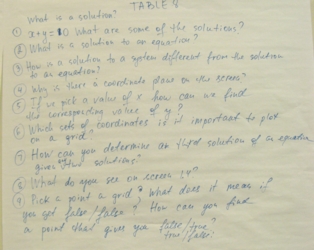 TABLE 8
What is a solution?
① x+y=10 What are some of the solutions?
② What is a solution to an equation?
③ How is a solution to a system different from the solution
to an equation?
④ Why is there a coordinate plane on the screen?
⑤ If we pick a value of x how can we find
the corresponding values of y?
⑥ Which sets of coordinates is it important to plot
on a grid?
⑦ How can you determine an third solution of an equation
given two solutions?
⑧ What do you see on screen
⑨ Pick a point on grid? What does it mean if
you get false/false? How can you find
a point that gives you false/true?
true/false?